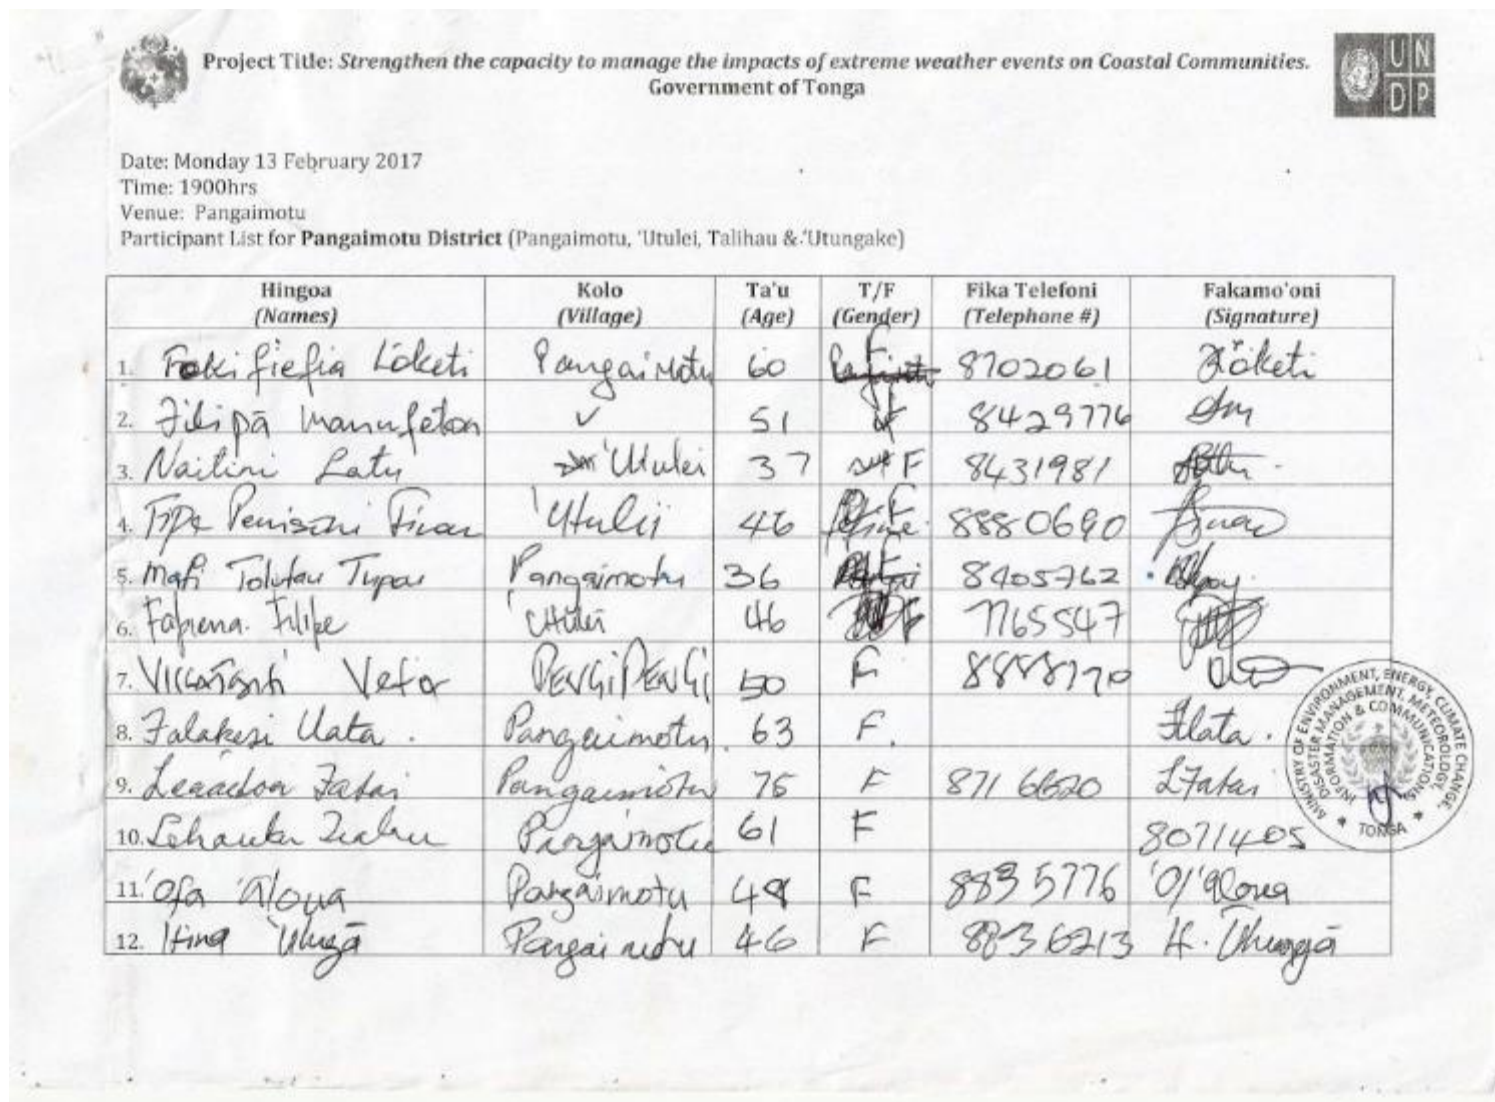 Project Title: Strengthen the capacity to manage the impacts of extreme weather events on Coastal Communities.
Government of Tonga
UN
DP
Date: Monday 13 February 2017
Time: 1900hrs
Venue: Pangaimotu
Participant List for Pangaimotu District (Pangaimotu, 'Utulei, Talihau & 'Utungake)
Hingoa Kolo Ta'u T/F Fika Telefoni Fakamo'oni
(Names) (Village) (Age) (Gender) (Telephone #) (Signature)
1. Fokifiefia Lōketi Pangaimotu 60 F 8702061 Lōketi
2. Filipā 51 F 8429776
3. Naitini Latu 'Utulei 37 F 8431981 Latu
4. Penisoni 'Utulei 46 F 8880690
5. Mafi Tolutau Tupou Pangaimotu 36 F 8405762
6. Filipe 'Utulei 46 F 7765547
7. 50 F
8. Falakesi Uata. Pangaimotu 63 F. Uata.
9. Fatai Pangaimotu 75 F 871 6620 L Fatai
10. Pangaimotu 61 F 8071405
11. 'Ofa 'Aloua Pangaimotu F 8835776
12. Pangaimotu 46 F 8836213 H.
MINISTRY OF ENVIRONMENT, ENERGY, CLIMATE CHANGE,
DISASTER MANAGEMENT, METEOROLOGY,
INFORMATION & COMMUNICATIONS
TONGA